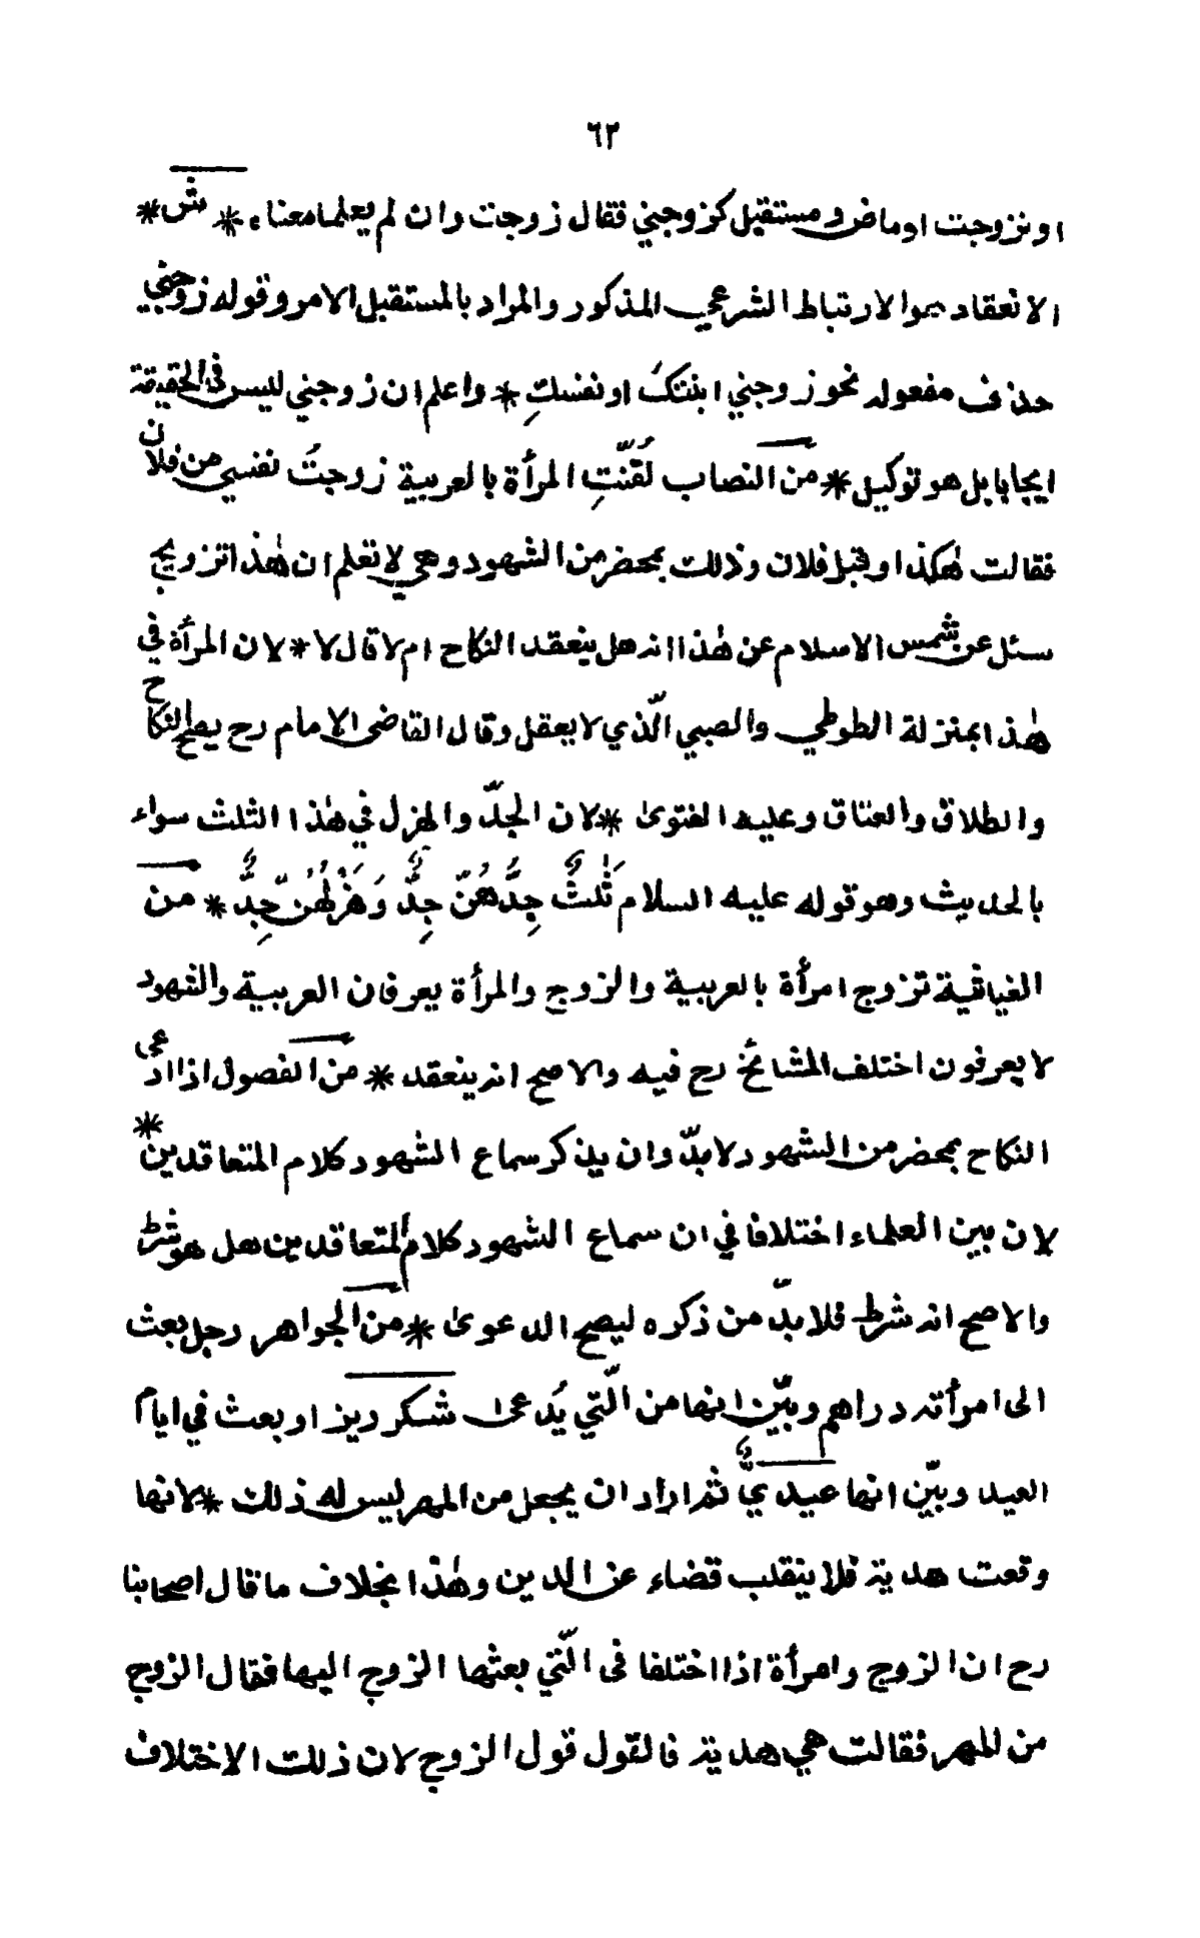 ٦٢
او نزوجت اوماض ومستقبل كزوجني فقال زوجت وان لم يعلما معناه * ش *
الانعقاد هوالارتباط الشرعي المذكور والمراد بالمستقبل الامر وقوله زوجني
حذف مفعوله نحو زوجني ابنتكَ اونفسكِ * واعلم ان زوجني ليس في الحقيقة
ايجابا بل هو توكيل * من النصاب لُقّنتِ المرأة بالعربية زوجتُ نفسي من فلان
فقالت هٰكذا وقبل فلان وذلك بمحضر من الشهود وهي لا تعلم ان هٰذا تزويج
سئل عن شمس الاسلام عن هٰذا انه هل ينعقد النكاح ام لا قال لا * لان المرأة في
هٰذا بمنزلة الطوطي والصبي الّذي لا يعقل وقال القاضى الامام رح يصلح النكاح
والطلاق والعتاق وعليه الفتوىٰ * لان الجدّ والهزل في هٰذا الثلث سواء
بالحديث وهو قوله عليه السلام ثَلٰثٌ جِدُّهُنّ جِدٌّ وَهَزْلُهُنّ جِدٌّ * من
الغياثية تزوج امرأة بالعربية والزوج والمرأة يعرفان العربية والشهود
لا يعرفون اختلف المشائخ رح فيه والاصح انه ينعقد * من الفصول اذا ادعى
النكاح بمحضر من الشهود لا بدّ وان يذكر سماع الشهود كلام المتعاقدين *
لان بين العلماء اختلافا في ان سماع الشهود كلام المتعاقدين هل هو شرط
والاصح انه شرط فلا بدّ من ذكره ليصح الدعوىٰ * من الجواهر رجل بعث
الى امرأته دراهم وبيّن انها من الّتي يُدعىٰ شكر ريز او بعث في ايام
العيد وبيّن انها عيديٌّ ثم اراد ان يجعل من المهر ليس له ذلك * لانها
وقعت هدية فلا ينقلب قضاء عن الدين وهٰذا بخلاف ما قال اصحابنا
رح ان الزوج وامرأة اذا اختلفا فى الّتي بعثها الزوج اليها فقال الزوج
من المهر فقالت هي هدية فالقول قول الزوج لان ذلك الاختلاف